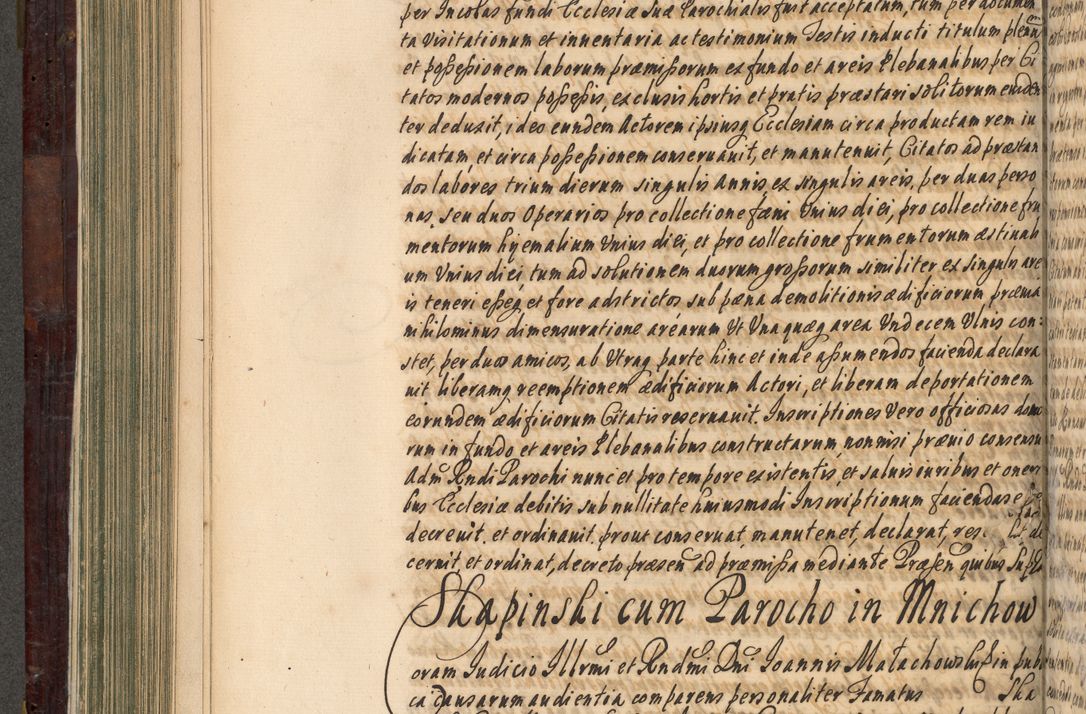 per Incolas fundi Ecclesiæ suæ Parochialis fuit acceptatum, tum per documen
ta Visitationum et inuentaria ac testimonium Testis inducti titulum plenu
et poßeßionem laborum præmißorum ex fundo et areis Plebanalibus per Ci
tatos modernos poßeßis, exclusis hortis et pratis præstari solitorum euiden
ter deduxit, ideo eundem Actorem ipsiusq Ecclesiam circa productam rem iu
dicatam, et circa poßeßionem conseruauit, et manutenuit, Citatos ad præstan
dos labores trium dierum singulis Annis, ex singulis areis, per duas perso
nas, seu duos Operarios pro collectione fæni Vnius diei, pro collectione fru
mentorum hyemalium Vnius diei, et pro collectione frumentorum æstiuali
um Vnius diei, tum ad solutionem duorum großorum similiter ex singulis are
is teneri eße, et fore adstrictos sub pæna demolitionis ædificiorum præuia
nihilominus dimensuratione areàrum Vt Vna quæq area Vndecem Vlnis con:
stet, per duos amicos, ab Vtraq parte hinc et inde aßumendos facienda declara
uit liberamq reemptionem ædificiorum Actori, et liberam deportationem
eorundem ædificiorum Citatis reseruauit. Inscriptiones Vero officiosas domo
rum in fundo et areis Plebanalibus constructarum nonnisi præuio consensu
Adm Rndi Parochi nunc et pro tempore existentis, et saluis iuribus et oneri
bus Ecclesiæ debitis sub nullitate huiusmodi Inscriptionum faciendas e
decreuit, et ordinauit, prout conseruat, manutenet, declarat, res. et de
cernit, et ordinat, decreto præsen ad præmißa mediante Præsen quibus
Skapinski cum Parocho in Mnichow
oram Iudicio Illrmi et Rndmi Dni Ioannis Małachowski in pub
ca Causarum audientia comparens personaliter Famatus Ska